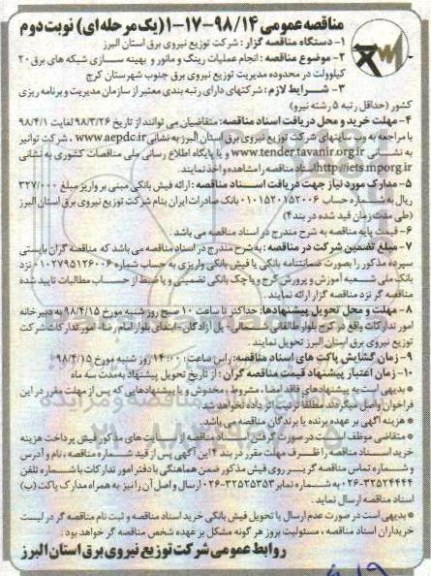 مناقصه عمومی ۹۸/۱۴-۱۷-۱-۱(یک مرحله ای) نوبت دوم
۱- دستگاه مناقصه گزار : شرکت توزیع نیروی برق استان البرز
۲- موضوع مناقصه : انجام عملیات رینگ و مانور و بهینه سازی شبکه های برق ۲۰
کیلوولت در محدوده مدیریت توزیع نیروی برق جنوب شهرستان کرج
۳- شرایط لازم : شرکتهای دارای رتبه بندی معتبر از سازمان مدیریت و برنامه ریزی
کشور (حداقل رتبه ۵ رشته نیرو)
۴- مهلت خرید و محل دریافت اسناد مناقصه: متقاضیان می توانند از تاریخ ۹۸/۳/۲۶ لغایت ۹۸/۴/۱
با مراجعه به وب سایتهای شرکت توزیع نیروی برق استان البرز به نشانی www.aepdc.ir ، شرکت توانیر
به نشانی www.tender.tavanir.org.ir و یا پایگاه اطلاع رسانی ملی مناقصات کشوری به نشانی
http://iets.mporg.ir اسناد مناقصه را مشاهده و اخذ نمایند .
۵- مدارک مورد نیاز جهت دریافت اسناد مناقصه : ارائه فیش بانکی مبنی بر واریز مبلغ ۳۲۷/۰۰۰
ریال به شماره حساب ۰۱۰۱۵۲۰۱۵۲۰۰۶ بانک صادرات ایران بنام شرکت توزیع نیروی برق استان البرز
(طی مدت زمان قید شده در بند ۴)
۶- قیمت پایه مناقصه به شرح مندرج در اسناد مناقصه می باشد .
۷- مبلغ تضمین شرکت در مناقصه : به شرح مندرج در اسناد مناقصه می باشد که مناقصه گران بایستی
سپرده مذکور را بصورت ضمانتنامه بانکی یا فیش بانکی واریزی به حساب شماره ۰۱۰۲۷۹۵۱۲۶۰۰۶ نزد
بانک ملی شعبه آموزش و پرورش کرج و یا چک بانکی تضمینی و یا ضبط از حساب مطالبات تایید شده
مناقصه گر نزد مناقصه گزار ارائه نمایند .
۸- مهلت و محل تحویل پیشنهادها: حداکثر تا ساعت ۱۰ صبح روز شنبه مورخ ۹۸/۴/۱۵ به دبیرخانه
امور تدارکات واقع در کرج بلوار طالقانی شمالی - پل آزادگان - ابتدای بلوار امام رضا، امور تدارکات شرکت
توزیع نیروی برق استان البرز تحویل نمایند .
۹- زمان گشایش پاکت های اسناد مناقصه: راس ساعت : ۱۴:۰۰ روز شنبه مورخ ۹۸/۴/۱۵
۱۰- زمان اعتبار پیشنهاد قیمت مناقصه گران : از تاریخ تحویل پیشنهاد به مدت سه ماه
* بدیهی است به پیشنهادهای فاقد امضا، مشروط، مخدوش و یا پیشنهادهایی که پس از مهلت مقرر در این
فراخوان واصل میگردند مطلقا ترتیب اثر داده نخواهد شد.
* هزینه آگهی بر عهده برنده یا برندگان مناقصه می باشد.
* متقاضی موظف است در صورت گرفتن اسناد مناقصه از سایت های مذکور فیش پرداخت هزینه
خرید اسناد مناقصه را ظرف مهلت مقرر در بند ۴ این آگهی پس از قید شماره مناقصه ، نام و آدرس
و شماره تماس مناقصه گر بر روی فیش مذکور ضمن هماهنگی با دفتر امور تدارکات با شماره تلفن
۰۲۶-۳۲۵۲۴۴۴۴ به شماره نمابر ۰۲۶-۳۲۵۲۵۳۵۳ ارسال و اصل آن را نیز به همراه مدارک پاکت (ب)
اسناد مناقصه ارسال نماید .
* بدیهی است در صورت عدم ارسال یا تحویل فیش بانکی خرید اسناد مناقصه و ثبت نام مناقصه گر در لیست
خریداران اسناد مناقصه ، مسئولیت بروز هر گونه مشکل بر عهده شخص مناقصه گر خواهد بود .
روابط عمومی شرکت توزیع نیروی برق استان البرز